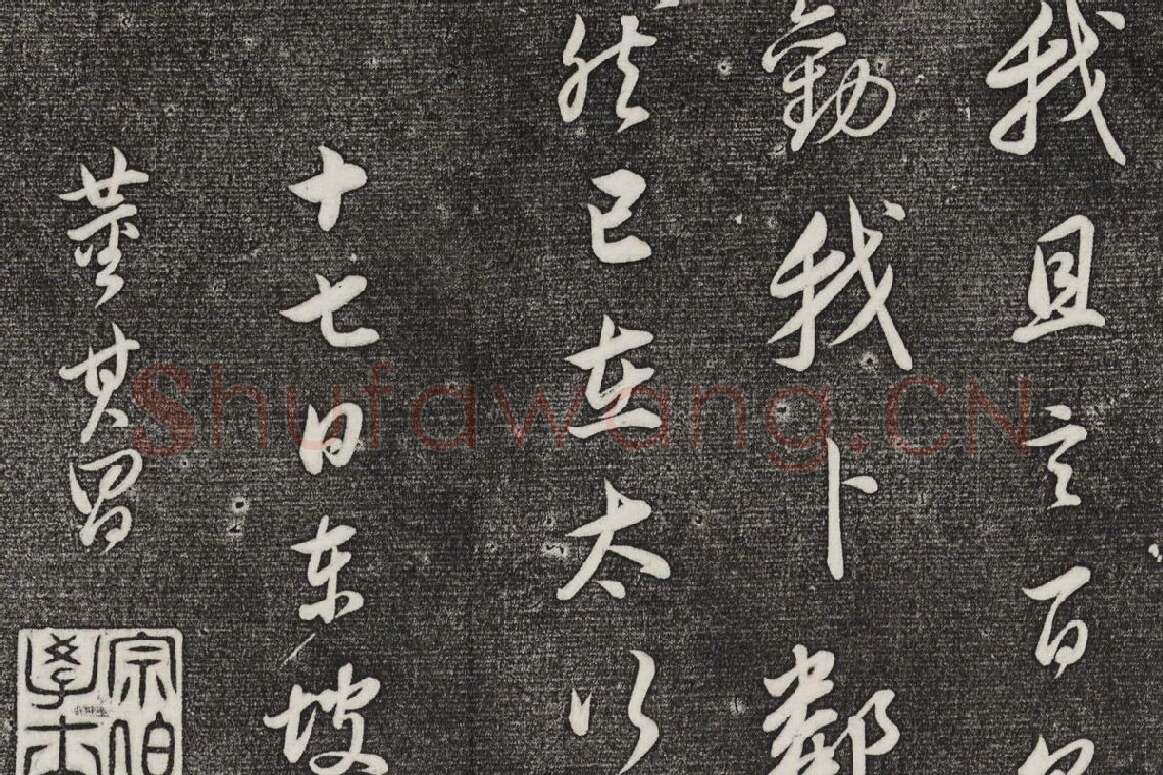 我且言百
勸我卜鄰
然已在太行
十七日東坡
董其昌
宗伯學士
Shufawang.CN